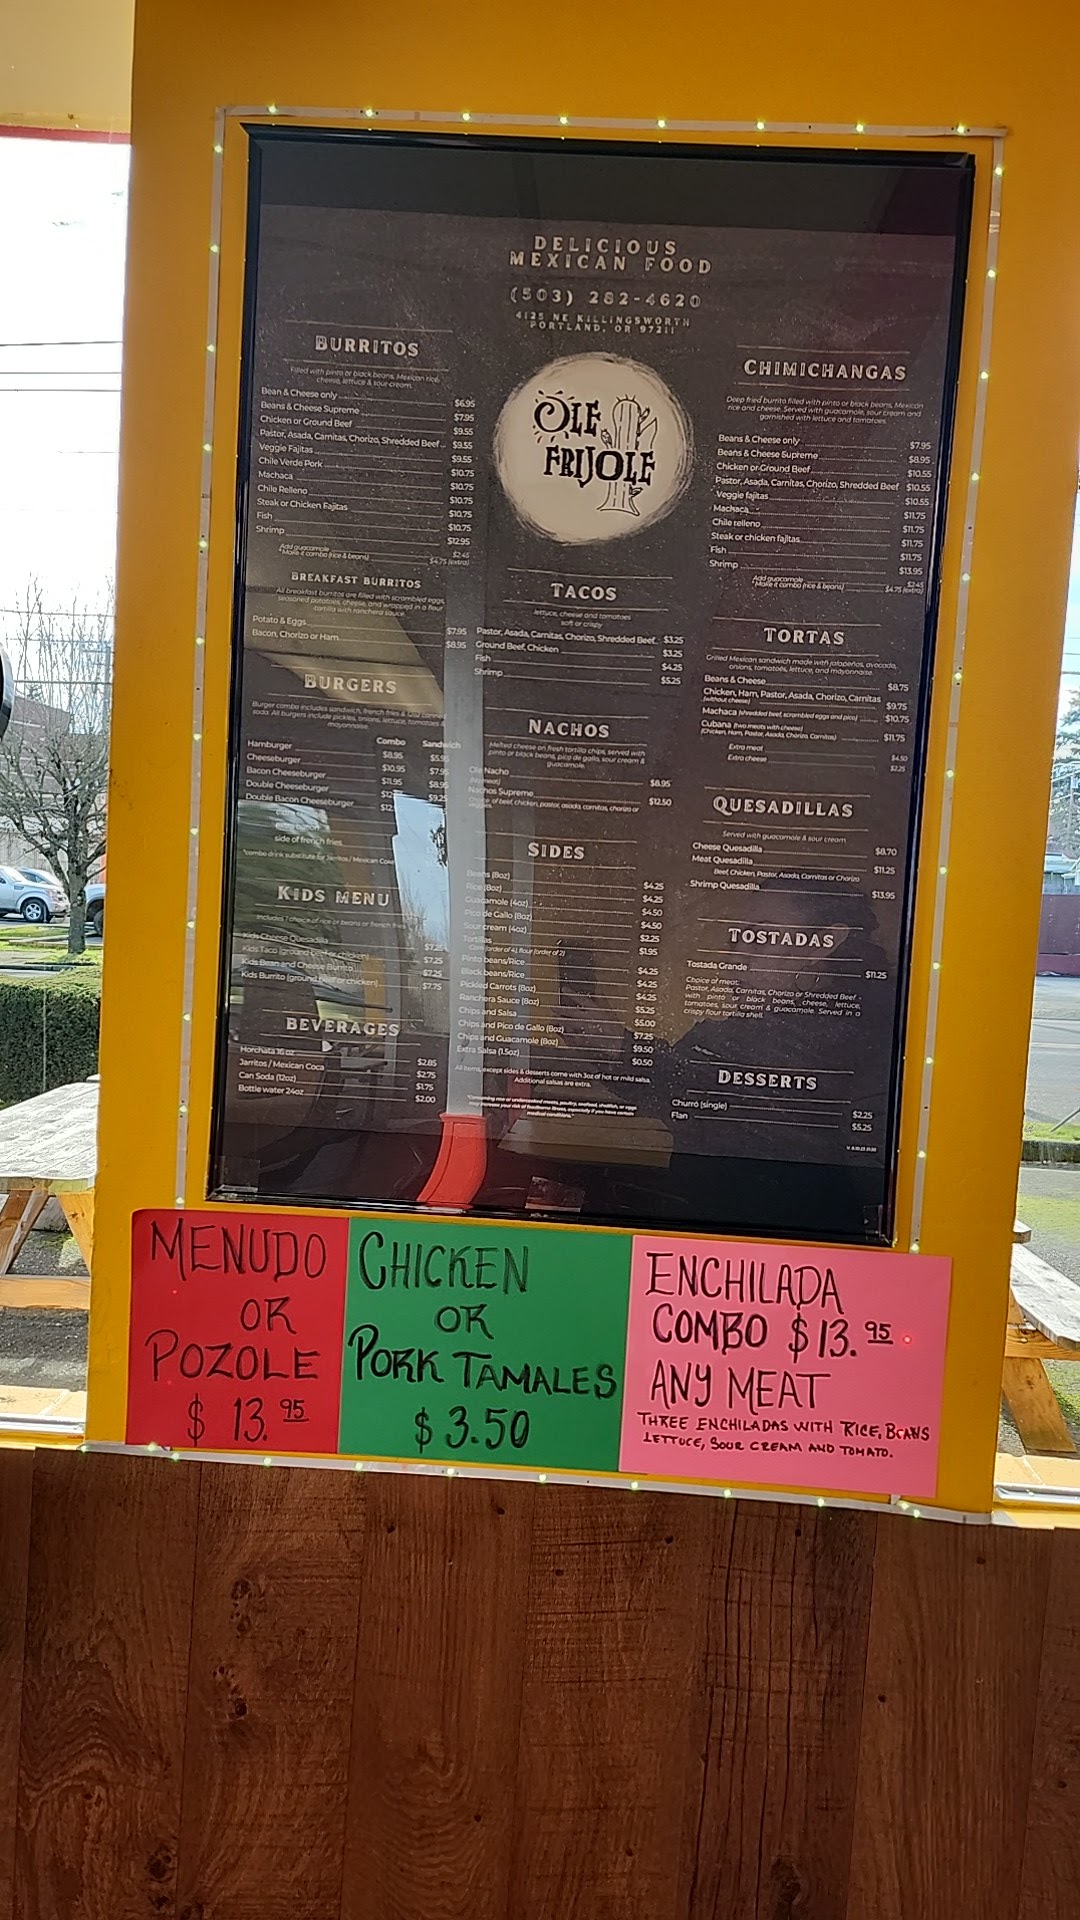 DELICIOUS
MEXICAN FOOD
(503) 282-4620
4125 NE KILLINGSWORTH
PORTLAND, OR 97211
OLE
FRIJOLE
BURRITOS
Filled with pinto or black beans, Mexican rice,
cheese, lettuce & sour cream.
Bean & Cheese only $6.95
Beans & Cheese Supreme $7.95
Chicken or Ground Beef $9.55
Pastor, Asada, Carnitas, Chorizo, Shredded Beef $9.55
Veggie Fajitas $9.55
Chile Verde Pork $10.75
Machaca $10.75
Chile Relleno $10.75
Steak or Chicken Fajitas $10.75
Fish $10.75
Shrimp $12.95
Add guacamole $2.45
Make it combo (rice & beans) $4.75 (extra)
BREAKFAST BURRITOS
All breakfast burritos are filled with scrambled eggs,
seasoned potatoes, cheese, and wrapped in a flour
tortilla with ranchera sauce.
Potato & Eggs $7.95
Bacon, Chorizo or Ham $8.95
BURGERS
Burger combo includes sandwich, french fries &
soda. All burgers include pickles, onions, lettuce, tomatoes &
mayonnaise.
Combo Sandwich
Hamburger $8.95
Cheeseburger $10.95
Bacon Cheeseburger $11.95
Double Cheeseburger
Double Bacon Cheeseburger
side of french fries
*combo drink substitute for Jarritos / Mexican Coke
KIDS MENU
Includes 1 choice of rice or beans or french fries
Kids Cheese Quesadilla $7.25
Kids Taco (ground beef or chicken) $7.25
Kids Bean and Cheese Burrito $7.25
Kids Burrito (ground beef or chicken) $7.75
BEVERAGES
Horchata 16 oz $2.85
Jarritos / Mexican Coca $2.75
Can Soda (12oz) $1.75
Bottle water 24oz $2.00
TACOS
lettuce, cheese and tomatoes
soft or crispy
Pastor, Asada, Carnitas, Chorizo, Shredded Beef $3.25
Ground Beef, Chicken $3.25
Fish $4.25
Shrimp $5.25
NACHOS
Melted cheese on fresh tortilla chips, served with
pinto or black beans, pico de gallo, sour cream &
guacamole.
Ole Nacho $8.95
(No meat)
Nachos Supreme $12.50
Choice of beef, chicken, pastor, asada, carnitas, chorizo or
veggies
SIDES
Beans (8oz) $4.25
Rice (8oz) $4.25
Guacamole (4oz) $4.50
Pico de Gallo (8oz) $4.50
Sour cream (4oz) $2.25
Tortillas $1.95
Corn (order of 4), flour (order of 2)
Pinto beans/Rice $4.25
Black beans/Rice $4.25
Pickled Carrots (8oz) $4.25
Ranchera Sauce (8oz) $5.25
Chips and Salsa $5.00
Chips and Pico de Gallo (8oz) $7.25
Chips and Guacamole (8oz) $9.50
Extra Salsa (1.5oz) $0.50
All items, except sides & desserts come with 3oz of hot or mild salsa.
Additional salsas are extra.
*Consuming raw or undercooked meats, poultry, seafood, shellfish, or eggs
may increase your risk of foodborne illness, especially if you have certain
medical conditions.*
CHIMICHANGAS
Deep fried burrito filled with pinto or black beans, Mexican
rice and cheese. Served with guacamole, sour cream and
garnished with lettuce and tomatoes.
Beans & Cheese only $7.95
Beans & Cheese Supreme $8.95
Chicken or Ground Beef $10.55
Pastor, Asada, Carnitas, Chorizo, Shredded Beef $10.55
Veggie fajitas $10.55
Machaca $11.75
Chile relleno $11.75
Steak or chicken fajitas $11.75
Fish $11.75
Shrimp $13.95
Add guacamole $2.45
Make it combo (rice & beans) $4.75 (extra)
TORTAS
Grilled Mexican sandwich made with jalapeños, avocado,
onions, tomatoes, lettuce, and mayonnaise.
Beans & Cheese $8.75
Chicken, Ham, Pastor, Asada, Chorizo, Carnitas $9.75
(without cheese)
Machaca (shredded beef, scrambled eggs and pico) $10.75
Cubana (two meats with cheese) $11.75
(Chicken, Ham, Pastor, Asada, Chorizo, Carnitas)
Extra meat $4.50
Extra cheese $2.25
QUESADILLAS
Served with guacamole & sour cream
Cheese Quesadilla $8.70
Meat Quesadilla $11.25
Beef, Chicken, Pastor, Asada, Carnitas or Chorizo
Shrimp Quesadilla $13.95
TOSTADAS
Tostada Grande $11.25
Choice of meat:
Pastor, Asada, Carnitas, Chorizo or Shredded Beef -
with pinto or black beans, cheese, lettuce,
tomatoes, sour cream & guacamole. Served in a
crispy flour tortilla shell.
DESSERTS
Churro (single) $2.25
Flan $5.25
MENUDO
OR
POZOLE
$13.95
CHICKEN
OR
PORK TAMALES
$3.50
ENCHILADA
COMBO $13.95
ANY MEAT
THREE ENCHILADAS WITH RICE, BEANS
LETTUCE, SOUR CREAM AND TOMATO.